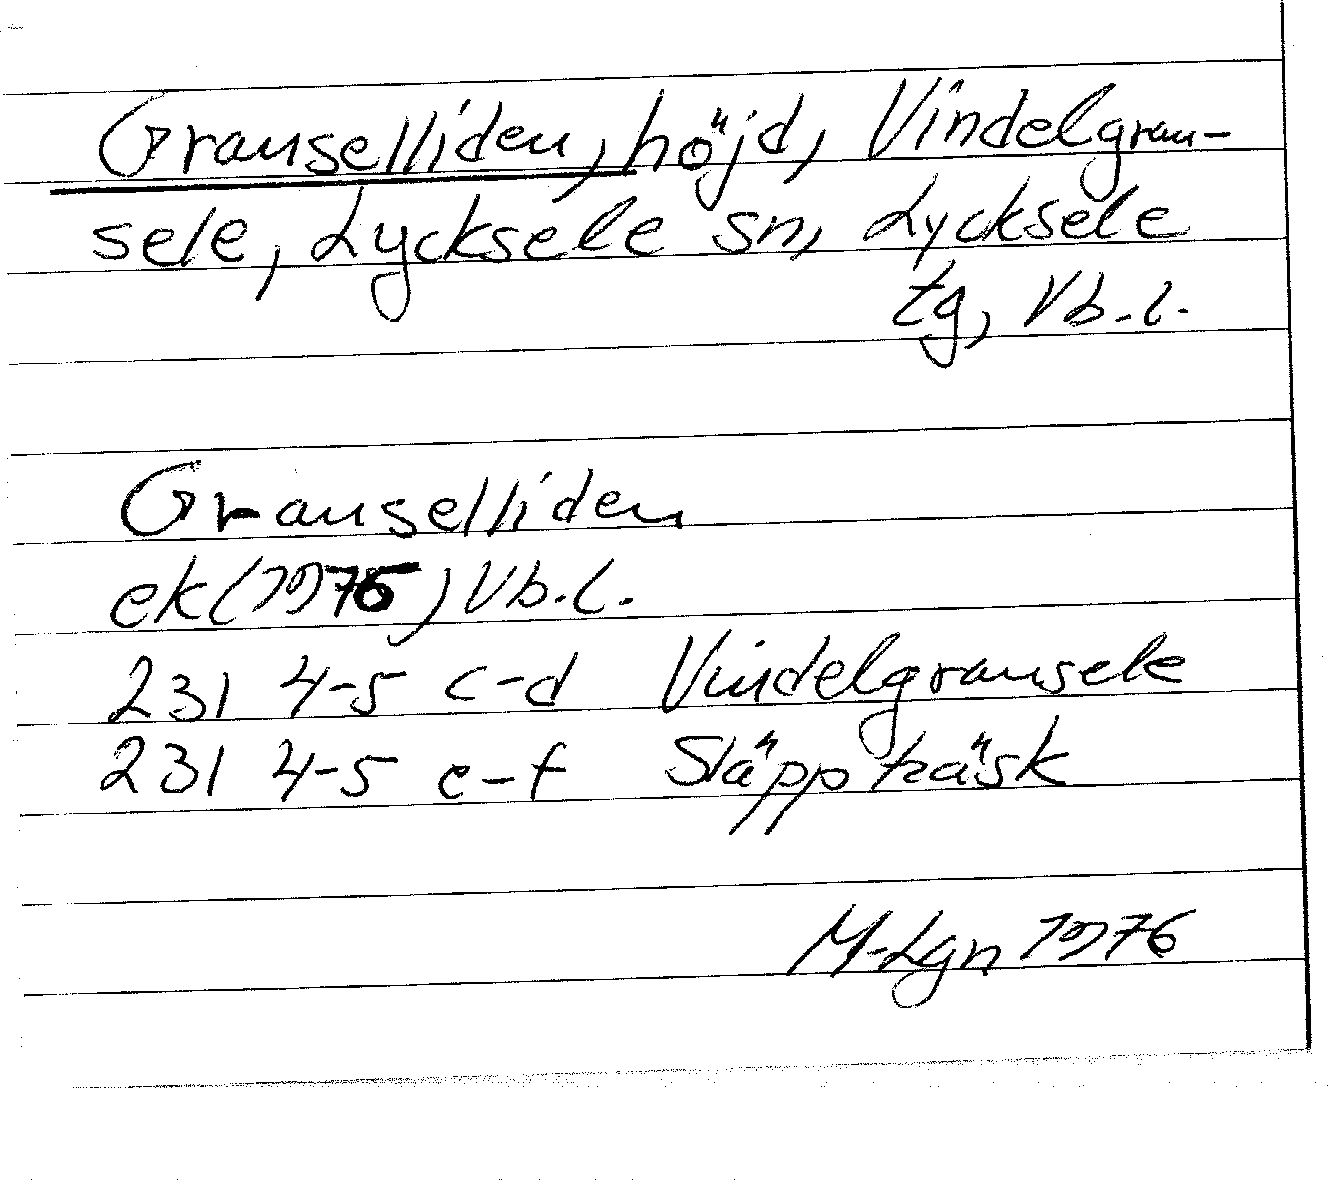 Granselliden, höjd, Vindelgran-
sele, Lycksele sn, Lycksele
tg, Vb.l.
Granselliden
ek(1976) Vb.l.
231 4-5 c-d Vindelgransele
231 4-5 e-f Släppträsk
M-Lgn 1976